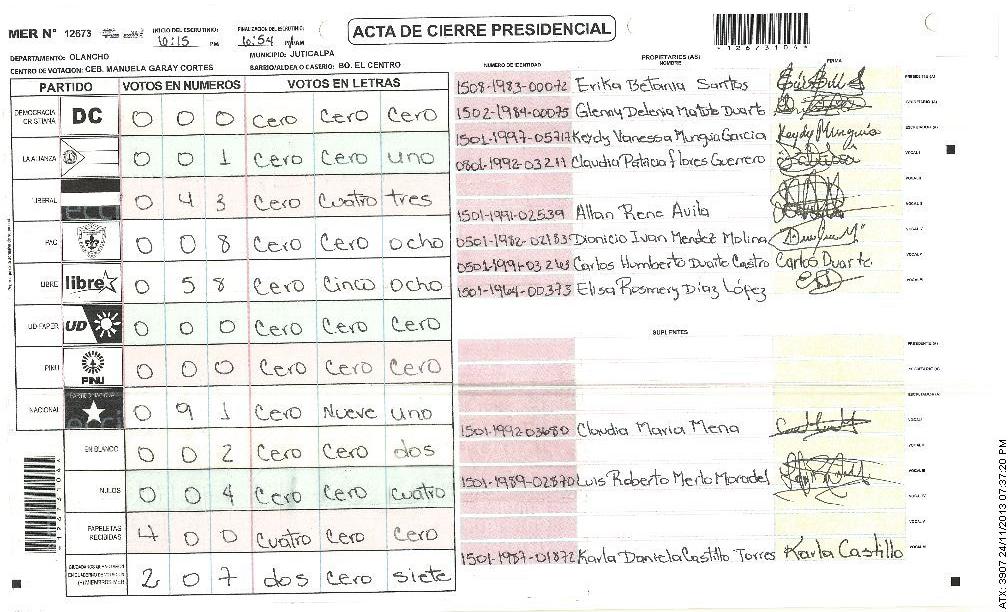 MER N° 12673
INICIO DEL ESCRUTINIO: 10:15 PM
FINALIZACION DEL ESCRUTINIO: 10:54 PM
ACTA DE CIERRE PRESIDENCIAL
12673104
DEPARTAMENTO: OLANCHO
MUNICIPIO: JUTICALPA
CENTRO DE VOTACION: CEB. MANUELA GARAY CORTES
BARRIO/ALDEA O CASERIO: BO. EL CENTRO
PARTIDO VOTOS EN NUMEROS VOTOS EN LETRAS
DEMOCRACIA CRISTIANA DC 0 0 0 Cero Cero Cero
LA ALIANZA 0 0 1 Cero Cero uno
LIBERAL 0 4 3 Cero Cuatro tres
PAC 0 0 8 Cero Cero ocho
LIBRE libre 0 5 8 Cero Cinco ocho
UD-FAPER UD 0 0 0 Cero Cero Cero
PINU PINU 0 0 0 Cero Cero Cero
NACIONAL 0 9 1 Cero Nueve uno
EN BLANCO 0 0 2 Cero Cero dos
NULOS 0 0 4 Cero Cero cuatro
PAPELETAS RECIBIDAS 4 0 0 Cuatro Cero Cero
2 0 7 dos cero siete
PROPIETARIES (AS)
NUMERO DE IDENTIDAD NOMBRE FIRMA
1508-1983-00072 Erika Betania Santos PRESIDENTE (A)
1502-1984-00075 Glenny Delenia Matute Duarte SECRETARIO (A)
1501-1997-05717 Keydy Vanessa Munguia Garcia Keydy Munguia ESCRUTADOR (A)
0801-1992-03211 Claudia Patricia flores Guerrero VOCAL I
VOCAL II
1501-1991-02539 Allan Rene Avila VOCAL III
0501-1982-02183 Dionicio Ivan Mendez Molina
0501-1991-03263 Carlos Humberto Duarte Castro Carlos Duarte.
1501-1964-00373 Elisa Rosmery Díaz López
SUPLENTES
PRESIDENTE (A)
SECRETARIO (A)
ESCRUTADOR (A)
1501-1992-03680 Claudia Maria Mena VOCAL I
1501-1989-02870 Luis Roberto Merlo Moradel VOCAL III
1501-1987-01872 Karla Daniela Castillo Torres Karla Castillo
ATX: 3907 24/11/2013 07:37:20 PM